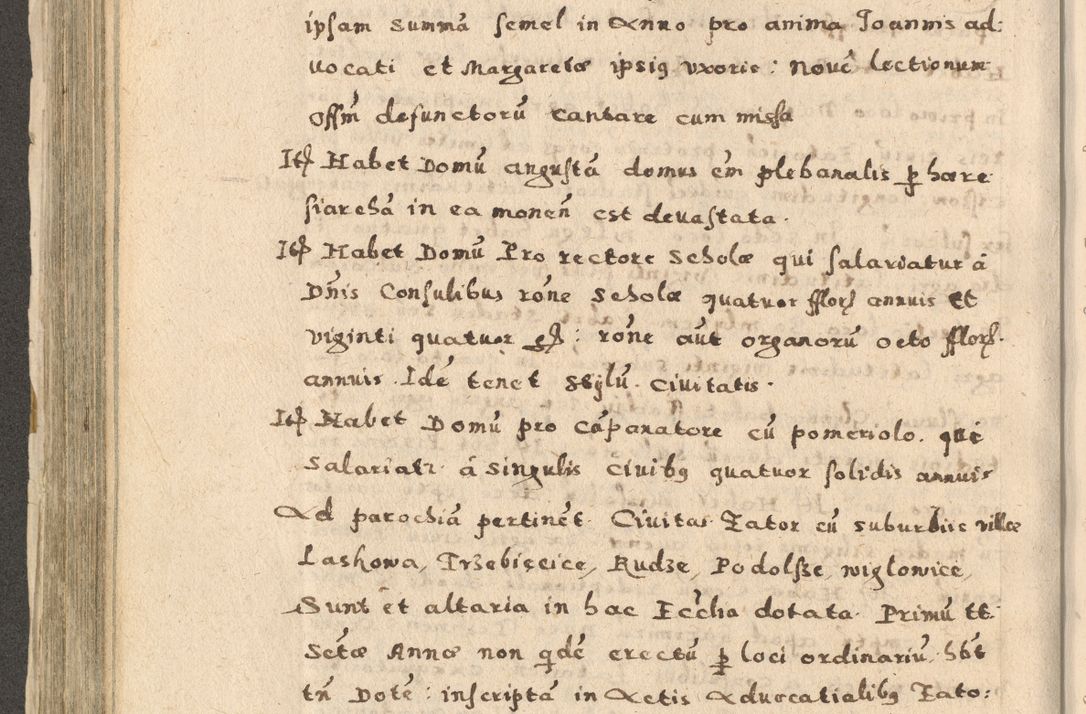 ipsam summā semel in Anno pro anima Joannis ad:
uocati et Margaretæ ipsiꝯ vxoris: Nouē lectionum
Offm̄ defunctorū cantare cum missa
Itꝫ Habet Domū angustā domus em̄ plebanalis ꝑ hære
siarchā in ea monen̄ est deuastata.
Itꝫ Habet Domū Pro rectore scholæ qui salariatur á
Dn̄is Consulibus rōne scholæ quatuor fflorꝫ annuis Et
viginti quatuor : rōne aūt organorū octo fflorꝫ.
annuis. Idē tenet stÿlū. Ciuitatis.
Itꝫ Habet Domū pro cāpanatore cū pomeriolo. qui
salariatr á singulis ciuibꝯ quatuor solidis annuis
Ad parochiā pertinēt. Ciuitas Zator cū suburbiis villæ
Laskowa, Trzebięcice, Rudze, Podolsze, wiglowice,
Sunt et altaria in hac Ecc̄lia dotata. Primū tt:
Sc̄tæ Annæ non qdē erectū ꝑ loci ordinariū. hb̄t
tn̄ Dotē: inscriptā in Actis Aduocatialibꝯ Zato: